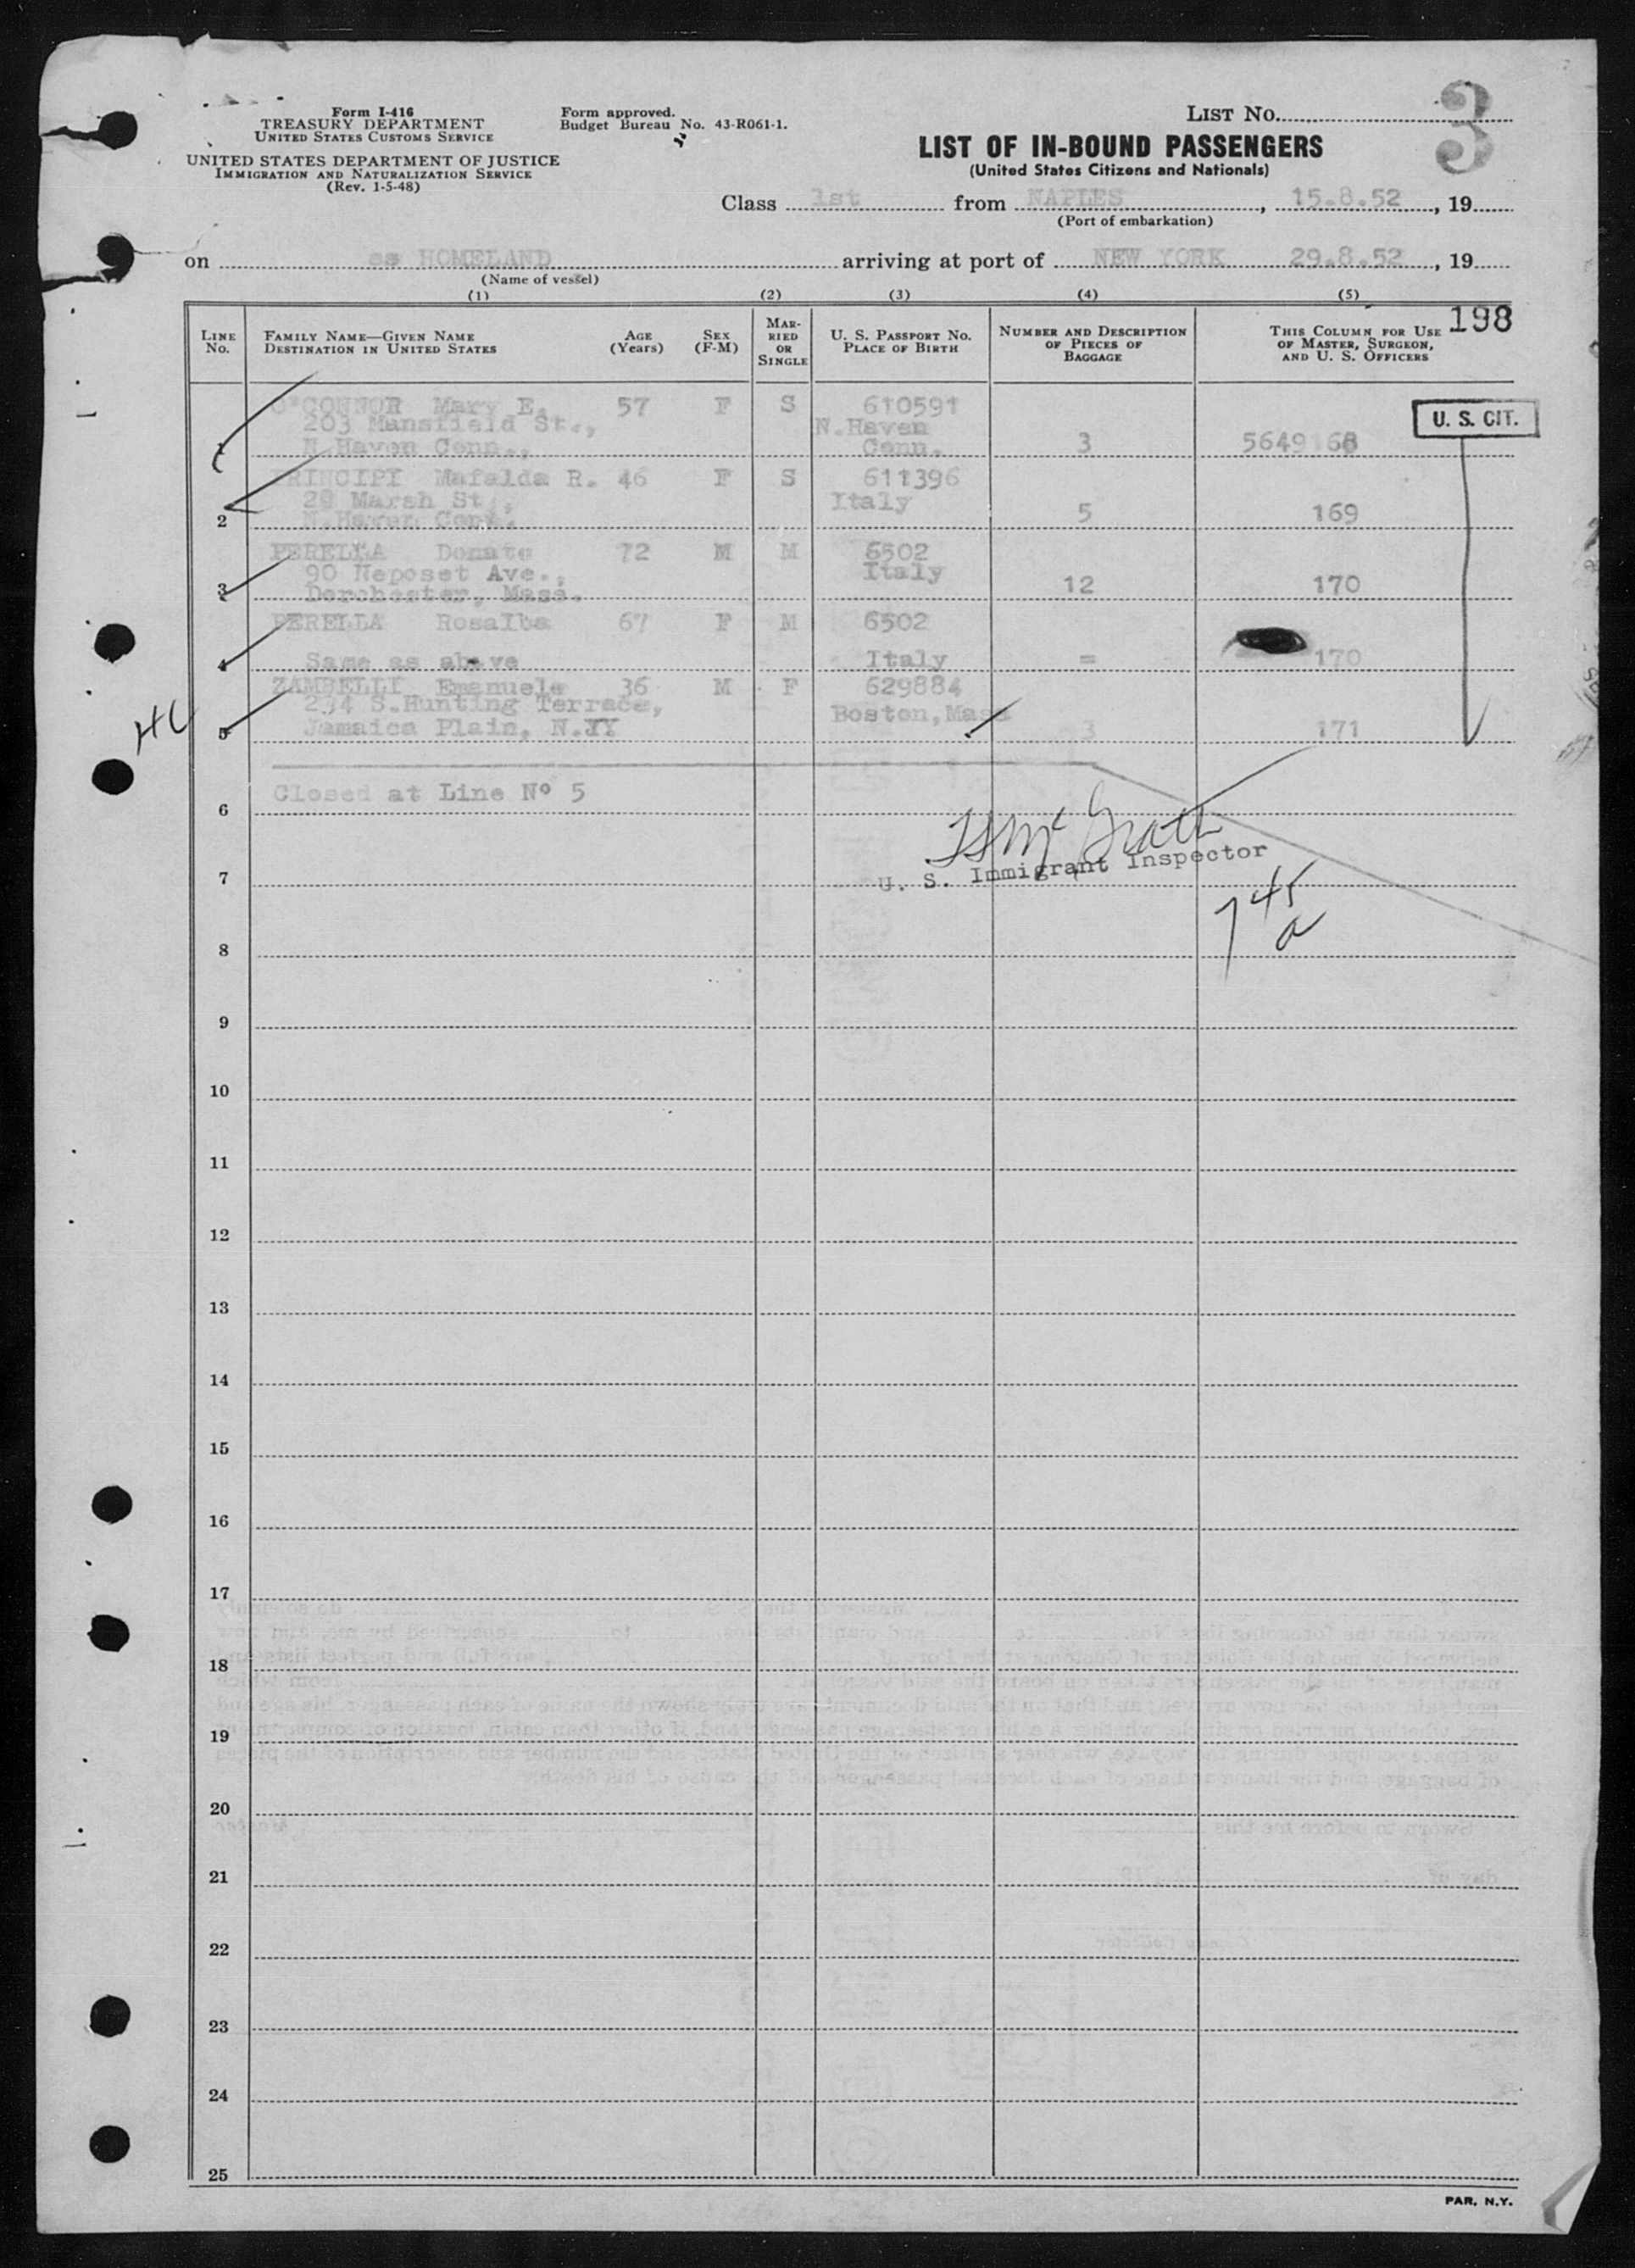 Form I-416
TREASURY DEPARTMENT
UNITED STATES CUSTOMS SERVICE
UNITED STATES DEPARTMENT OF JUSTICE
IMMIGRATION AND NATURALIZATION SERVICE
(Rev. 1-5-48)
Form approved.
Budget Bureau No. 43-R061-1.
LIST NO. 3
LIST OF IN-BOUND PASSENGERS
(United States Citizens and Nationals)
Class 1st from NAPLES, 15.8.52, 19
(Port of embarkation)
on ss HOMELAND arriving at port of NEW YORK 29.8.52, 19
(Name of vessel)
(1) (2) (3) (4) (5)
198
LINE NO. FAMILY NAME—GIVEN NAME DESTINATION IN UNITED STATES AGE (Years) SEX (F-M) MARRIED OR SINGLE U. S. PASSPORT NO. PLACE OF BIRTH NUMBER AND DESCRIPTION OF PIECES OF BAGGAGE THIS COLUMN FOR USE OF MASTER, SURGEON, AND U. S. OFFICERS
O'CONNOR Mary E. 57 F S 610591
U. S. CIT.
203 Mansfield St., N.Haven
1 N.Haven Conn., Conn. 3 5649168
PRINCIPI Mafalda R. 46 F S 611396
28 Marsh St., Italy
2 N.Haven Conn. 5 169
PERELLA Donato 72 M M 6502
90 Neposet Ave., Italy
3 Dorchester, Mass. 12 170
PERELLA Rosalba 67 F M 6502
4 Same as above Italy = 170
ZAMBELLI Emanuele 36 M F 629884
S.Hunting Terrace, Boston, Mass
HC 5 Jamaica Plain, N.YY 3 171
Closed at Line Nº 5
6
McGrath
7 U. S. Immigrant Inspector
7 45
a
8
9
10
11
12
13
14
15
16
17
18
19
20
21
22
23
24
25
PAR, N.Y.